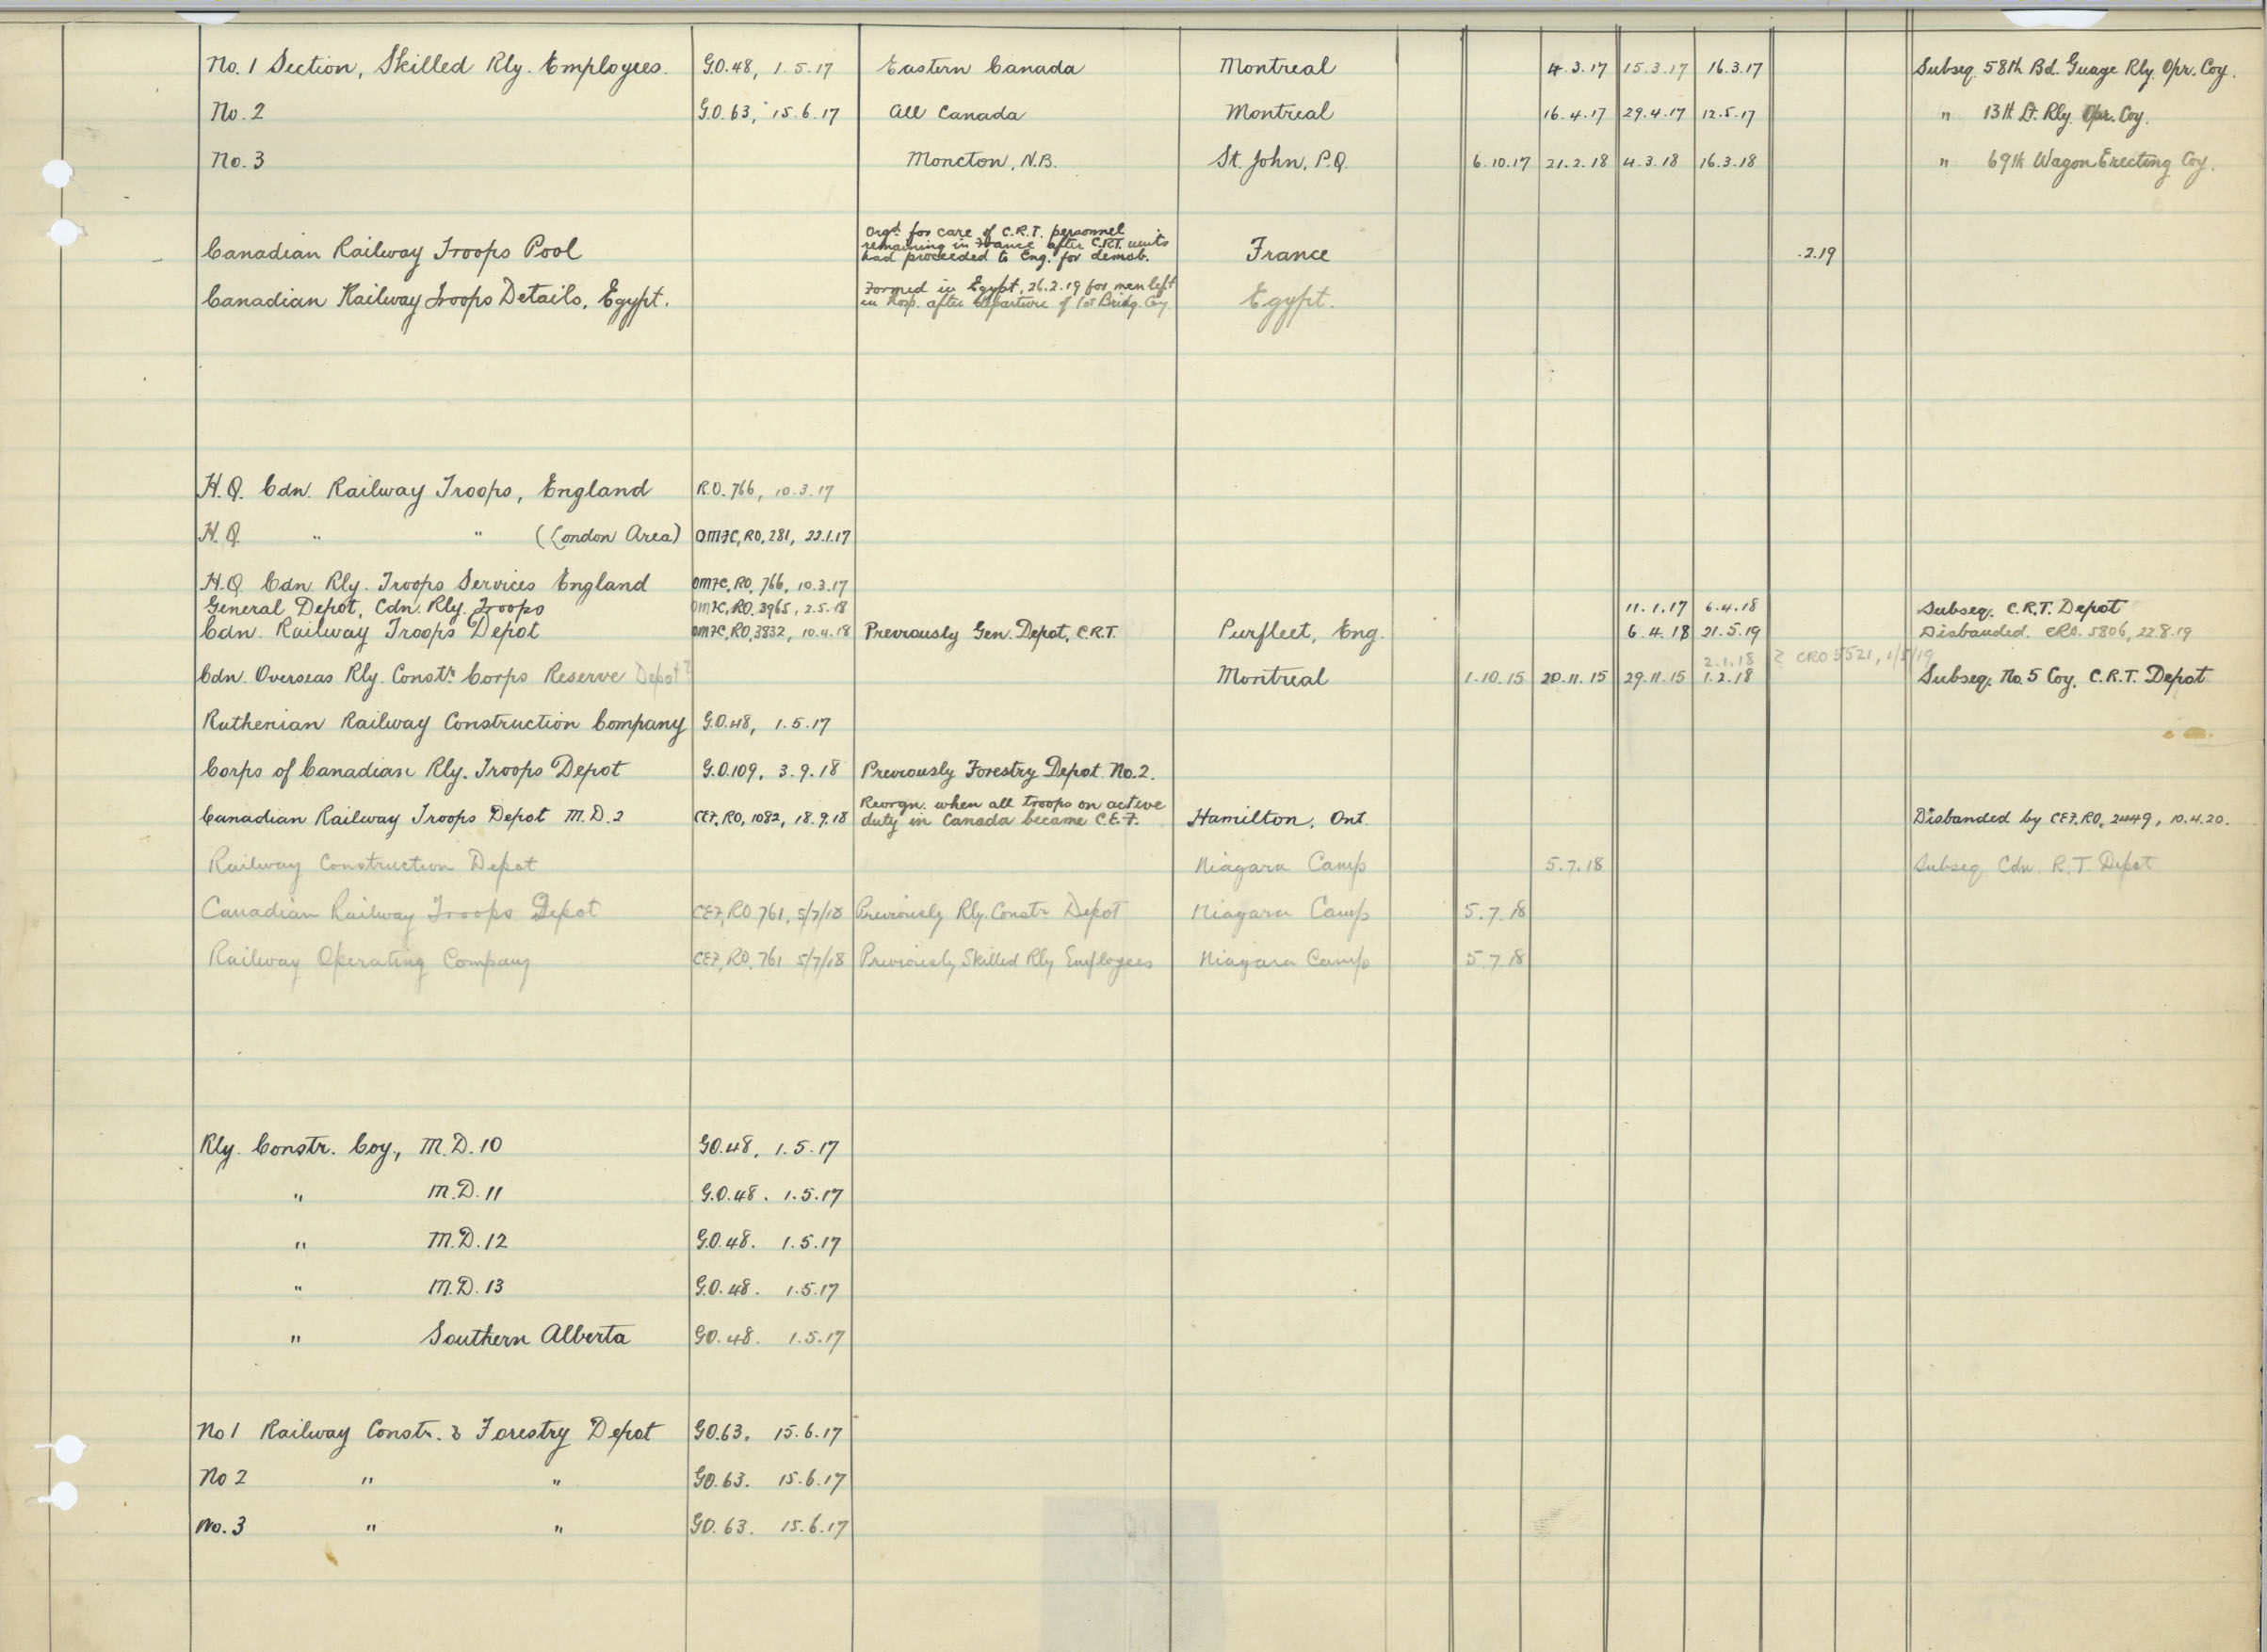 No. 1 Section, Skilled Rly. Employees. G.O. 48, 1.5.17 Eastern Canada Montreal 4.3.17 15.3.17 16.3.17 Subseq. 58th Bd. Guage Rly. Opr. Coy.
No. 2 G.O. 63, 15.6.17 All Canada Montreal 16.4.17 29.4.17 12.5.17 " 13th Lt. Rly. Opr. Coy.
No. 3 Moncton, N.B. St. John, P.Q. 6.10.17 21.2.18 4.3.18 16.3.18 " 69th Wagon Erecting Coy.
Orgd. for care of C.R.T. personnel
remaining in France after C.R.T. units
had proceeded to Eng. for demob.
Canadian Railway Troops Pool France .2.19
Formed in Egypt, 26.2.19 for men left
in Hosp. after departure of 1st Bridg. Coy.
Canadian Railway Troops Details, Egypt. Egypt.
H.Q. Cdn. Railway Troops, England R.O. 766, 10.3.17
H.Q. " " (London Area) OMFC, RO, 281, 22.1.17
H.Q. Cdn. Rly. Troops Services England OMFC, RO, 766, 10.3.17
General Depot, Cdn. Rly. Troops OMFC, RO. 3965, 2.5.18 11.1.17 6.4.18 Subseq. C.R.T. Depot
Cdn. Railway Troops Depot OMFC, RO, 3832, 10.4.18 Previously Gen. Depot, C.R.T. Purfleet, Eng. 6.4.18 21.5.19 Disbanded. CRO. 5806, 22.8.19
2.1.18 ? CRO 5521, 1/5/19
Cdn. Overseas Rly. Constr. Corps Reserve Depot? Montreal 1.10.15 20.11.15 29.11.15 1.2.18 Subseq. No. 5 Coy. C.R.T. Depot
Ruthenian Railway Construction Company G.O. 48, 1.5.17
Corps of Canadian Rly. Troops Depot G.O. 109, 3.9.18 Previously Forestry Depot No. 2.
Reorgn. when all troops on active
duty in Canada became C.E.F.
Canadian Railway Troops Depot M.D. 2 CEF, RO, 1082, 18.9.18 Hamilton, Ont. Disbanded by CEF. RO. 2449, 10.4.20.
Railway Construction Depot Niagara Camp 5.7.18 Subseq Cdn R.T. Depot
Canadian Railway Troops Depot CEF, RO 761, 5/7/18 Previously Rly. Constr Depot Niagara Camp 5.7.18
Railway Operating Company CEF, RO, 761 5/7/18 Previously Skilled Rly Employees Niagara Camp 5.7.18
Rly. Constr. Coy., M.D. 10 G.O. 48, 1.5.17
" M.D. 11 G.O. 48. 1.5.17
" M.D. 12 G.O. 48. 1.5.17
" M.D. 13 G.O. 48. 1.5.17
" Southern Alberta G.O. 48. 1.5.17
No 1 Railway Constr. & Forestry Depot G.O. 63. 15.6.17
No 2 " " G.O. 63. 15.6.17
No. 3 " " G.O. 63. 15.6.17